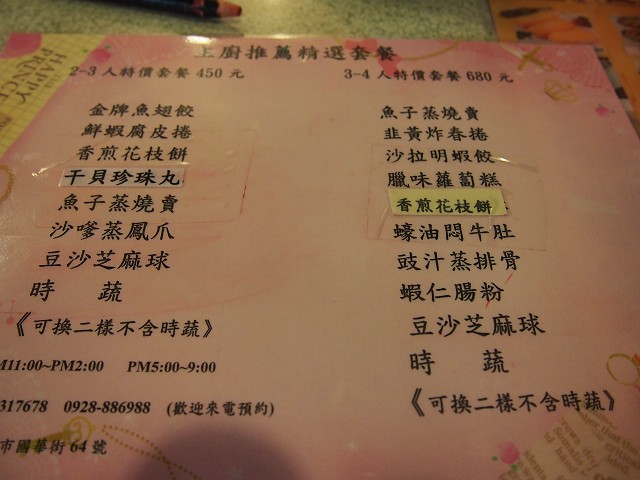 主廚推薦精選套餐
2-3 人特價套餐 450 元
金牌魚翅餃
鮮蝦腐皮捲
香煎花枝餅
干貝珍珠丸
魚子蒸燒賣
沙嗲蒸鳳爪
豆沙芝麻球
時 蔬
《可換二樣不含時蔬》
3-4 人特價套餐 680 元
魚子蒸燒賣
韭黃炸春捲
沙拉明蝦餃
臘味蘿蔔糕
香煎花枝餅
蠔油悶牛肚
豉汁蒸排骨
蝦仁腸粉
豆沙芝麻球
時 蔬
《可換二樣不含時蔬》
M11:00~PM2:00 PM5:00~9:00
317678 0928-886988 (歡迎來電預約)
市國華街 64 號
HAPPY
PRINCE